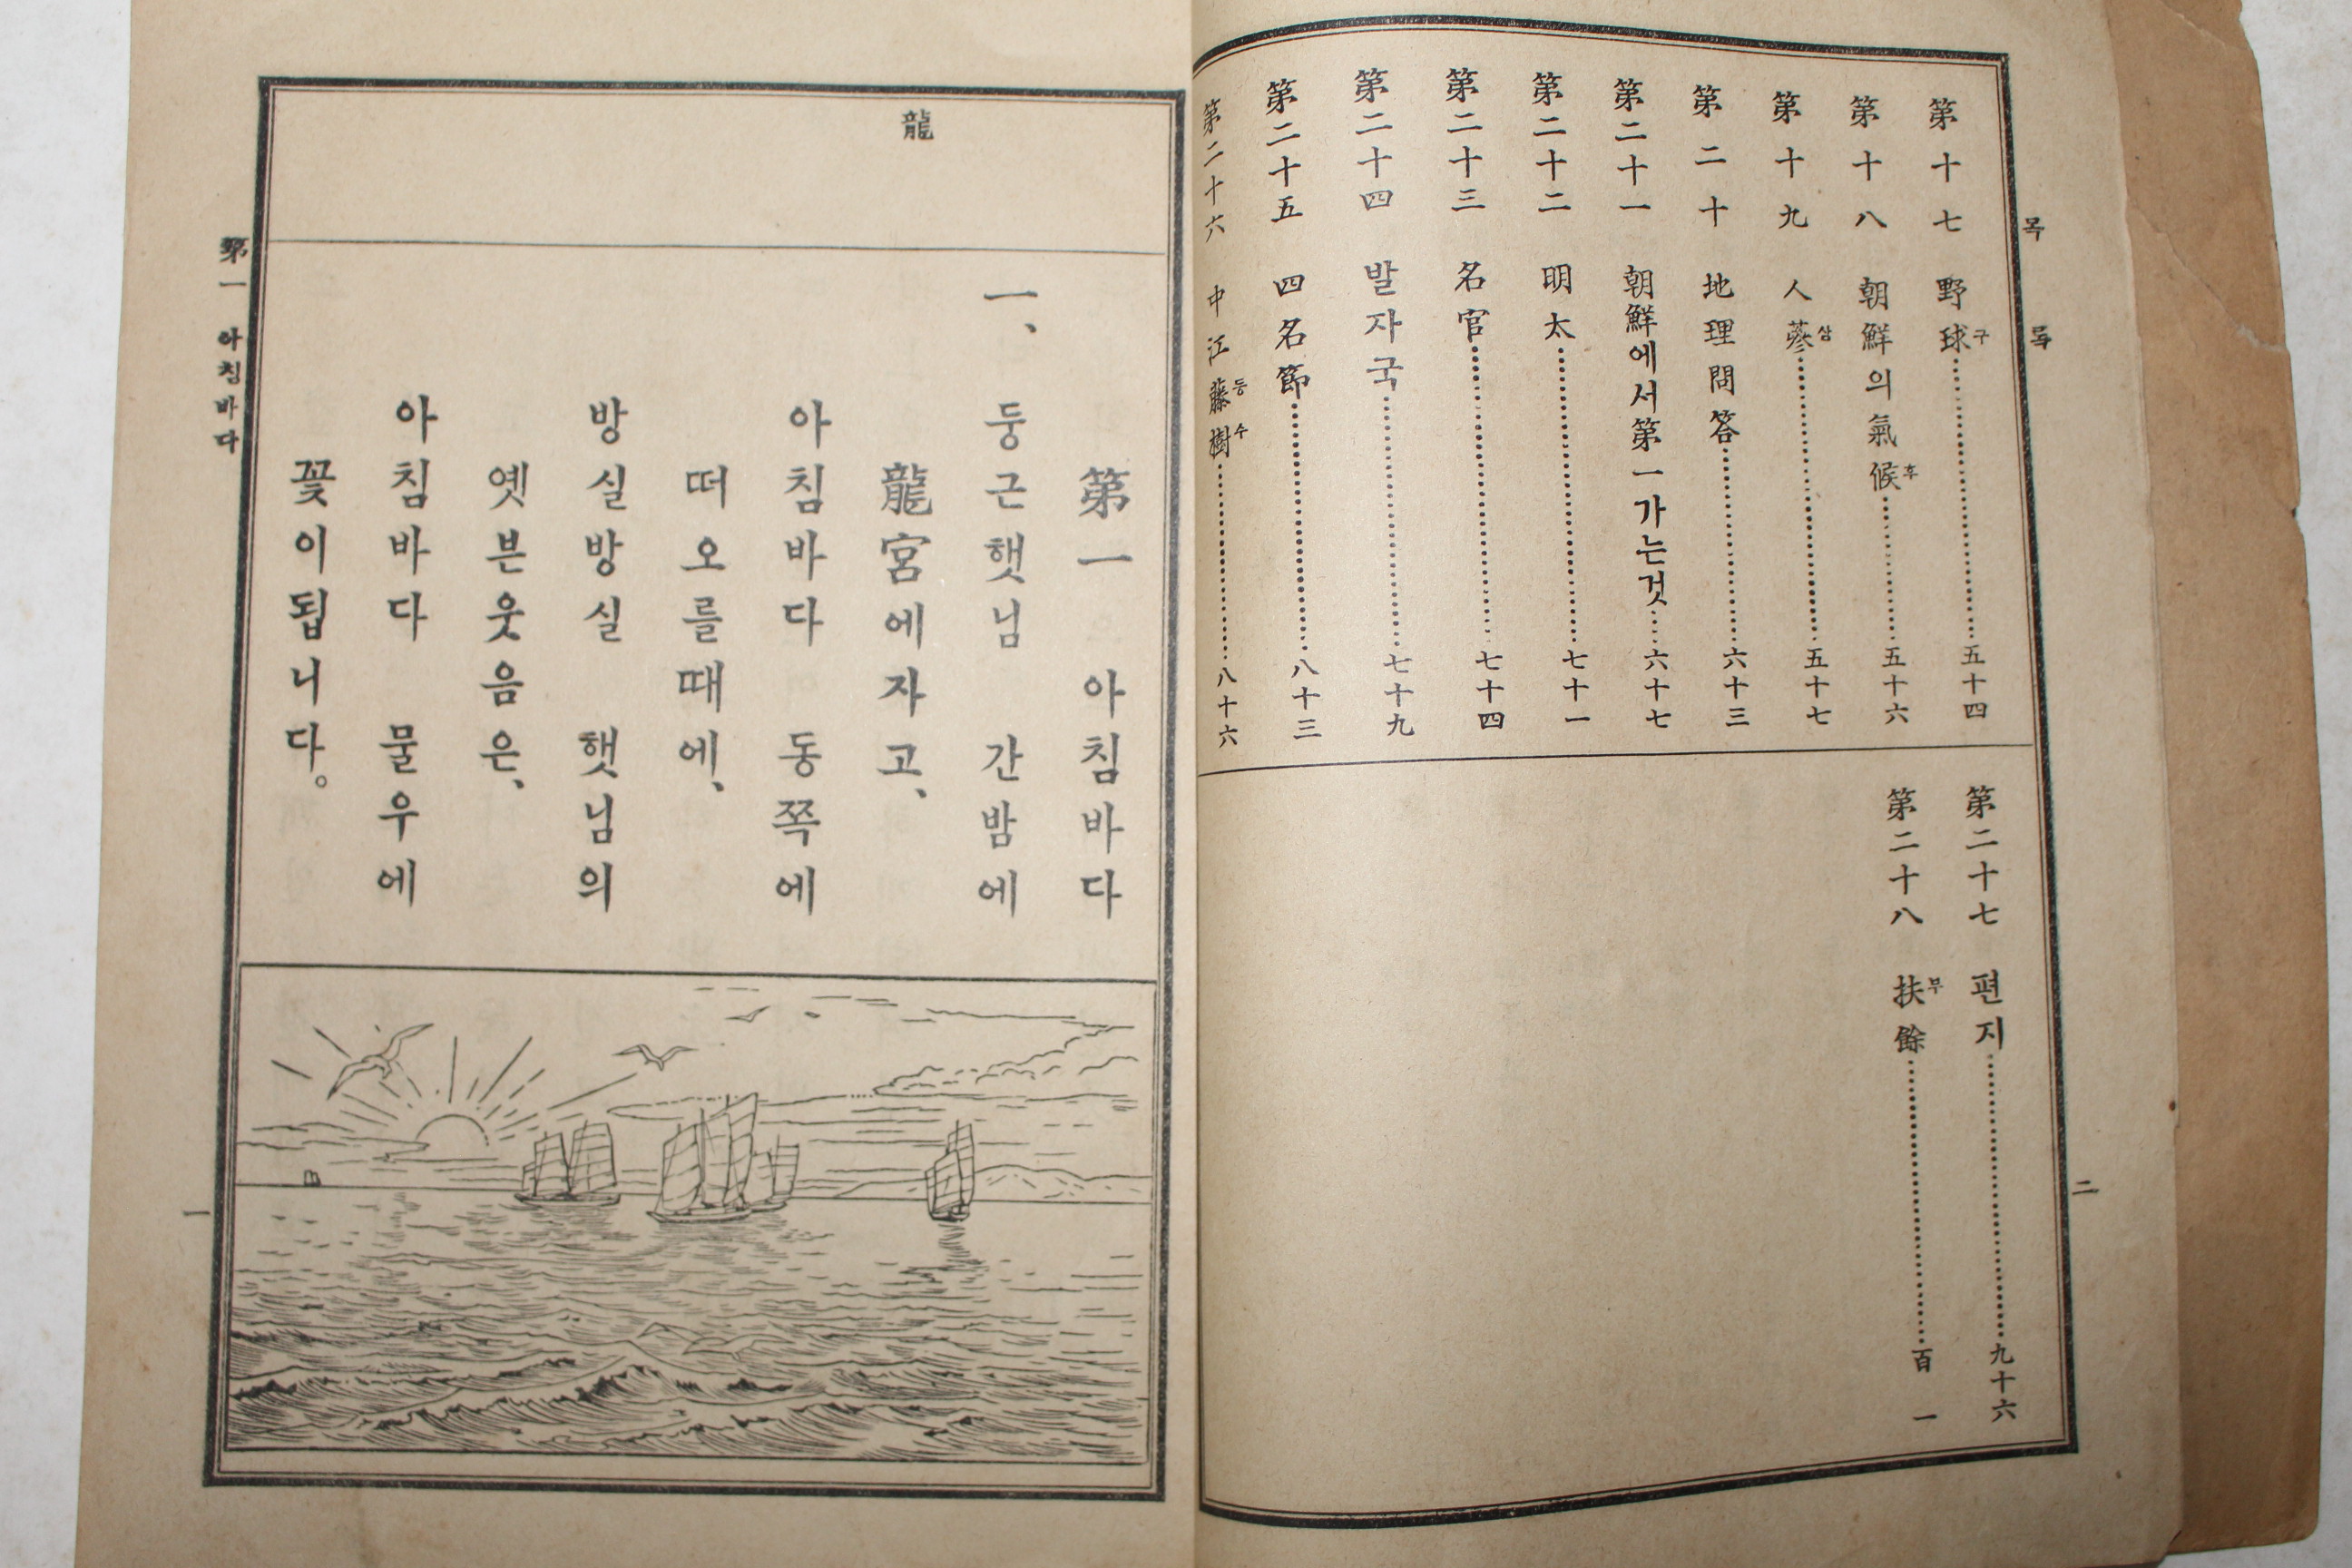 목록
第十七 野球구………五十四
第十八 朝鮮의氣候후………五十六
第十九 人蔘삼………五十七
第二十 地理問答………六十三
第二十一 朝鮮에서第一가는것………六十七
第二十二 明太………七十一
第二十三 名官………七十四
第二十四 발자국………七十九
第二十五 四名節………八十三
第二十六 中江藤등樹수………八十六
第二十七 편지………九十六
第二十八 扶부餘………百一
二
龍
第一 아침바다
一、둥근햇님 간밤에
龍宮에자고、
아침바다 동쪽에
떠오를때에、
방실방실 햇님의
옛븐웃음은、
아침바다 물우에
꽃이됩니다。
第一 아침바다
一